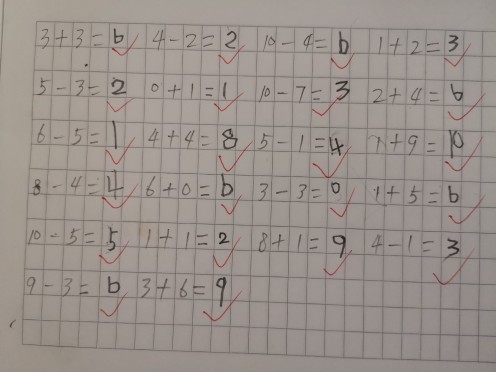 3+3=6 4-2=2 10-4=6 1+2=3
5-3=2 0+1=1 10-7=3 2+4=6
6-5=1 4+4=8 5-1=4 1+9=10
8-4=4 6+0=6 3-3=0 1+5=6
10-5=5 1+1=2 8+1=9 4-1=3
9-3=6 3+6=9